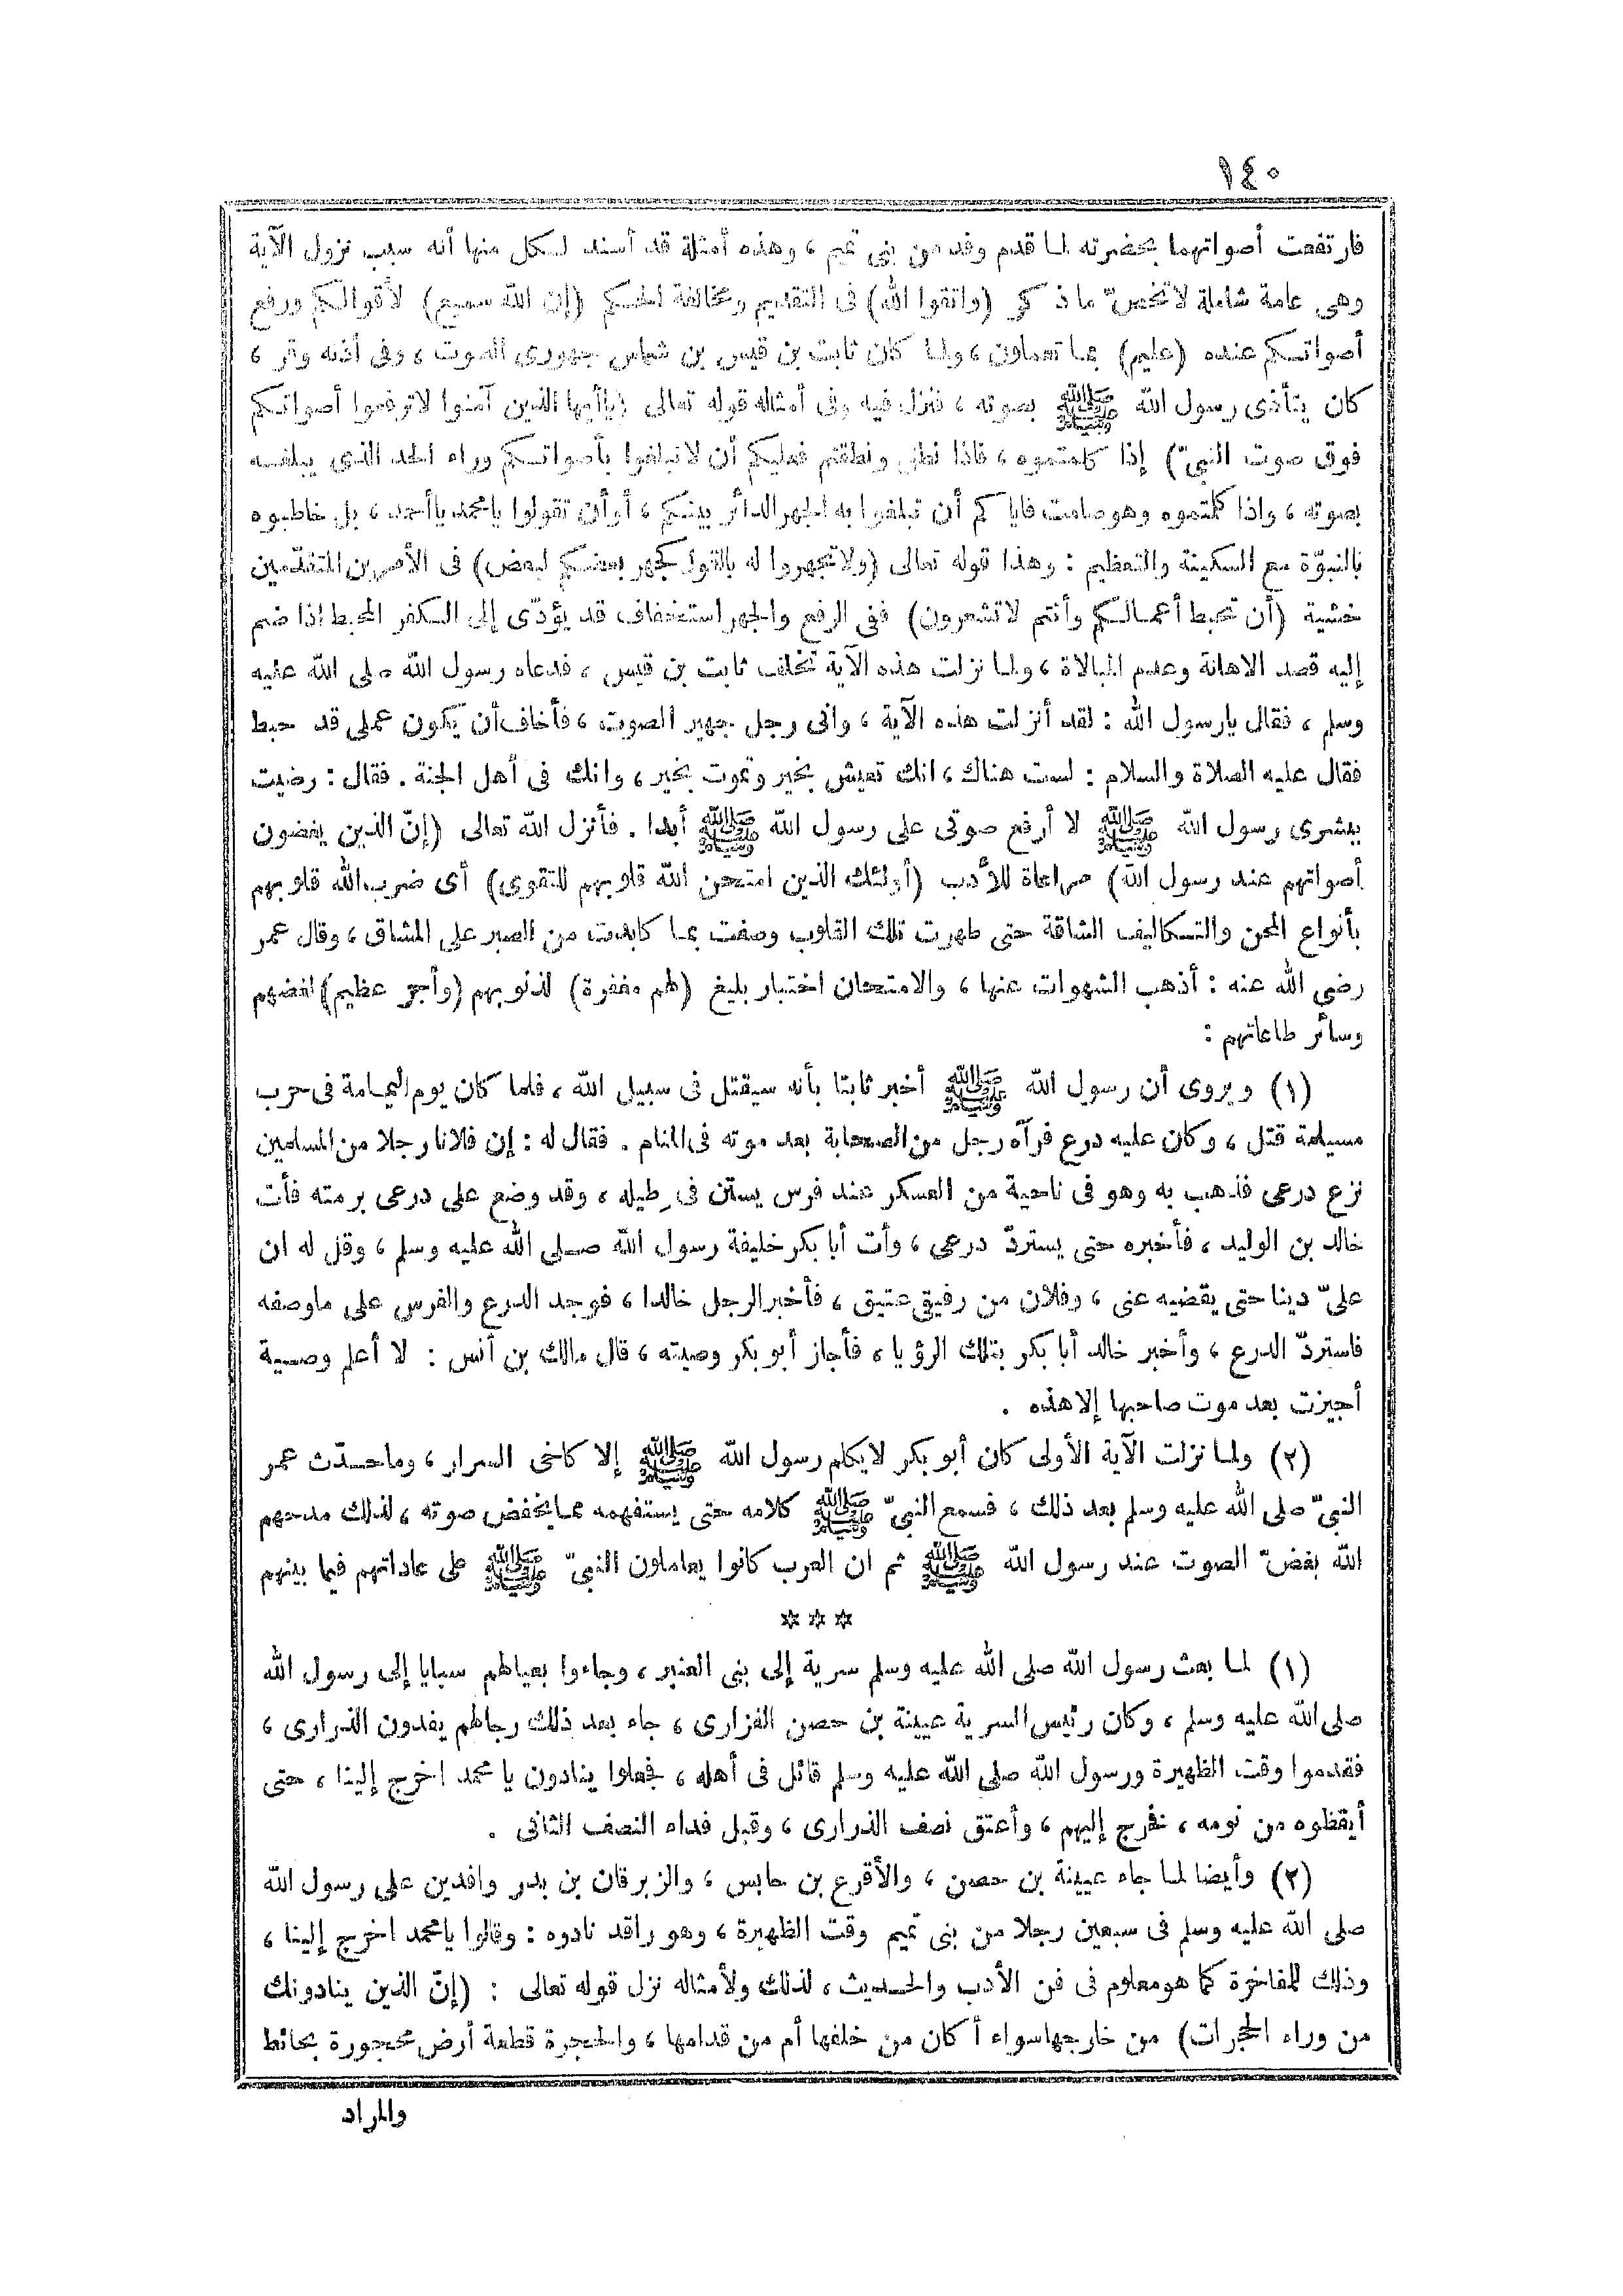 ١٤٠
فارتفعت أصواتهما بحضرته لما قدم وفد من بنى تميم ، وهذه أمثلة قد أسند لكل منها أنه سبب نزول الآية
وهى عامة شاملة لا تخصّ ما ذكر (واتقوا الله) فى التقديم ومخالفة الحكم (إن الله سميع) لأقوالكم ورفع
أصواتكم عنده (عليم) بما تعملون ، ولما كان ثابت بن قيس بن شماس جهورى الصوت ، وفى أذنه وقر ،
كان يتأذى رسول الله ﷺ بصوته ، فنزل فيه وفى أمثاله قوله تعالى (ياأيها الذين آمنوا لاترفعوا أصواتكم
فوق صوت النبىّ) إذا كلمتموه ، فاذا نطق ونطقتم فعليكم أن لاتبلغوا بأصواتكم وراء الحد الذى يبلغه
بصوته ، واذا كلمتموه وهو صامت فاياكم أن تبلغوا به الجهر الدائر بينكم ، أو أن تقولوا يامحمد ياأحمد ، بل خاطبوه
بالنبوّة مع السكينة والتعظيم : وهذا قوله تعالى (ولاتجهروا له بالقول كجهر بعضكم لبعض) فى الأمرين المتقدّمين
خشية (أن تحبط أعمالكم وأنتم لاتشعرون) ففى الرفع والجهر استخفاف قد يؤدّى إلى الكفر المحبط إذا ضم
إليه قصد الاهانة وعدم المبالاة ، ولما نزلت هذه الآية تخلف ثابت بن قيس ، فدعاه رسول الله صلى الله عليه
وسلم ، فقال يارسول الله : لقد أنزلت هذه الآية ، وانى رجل جهير الصوت ، فأخاف أن يكون عملى قد حبط
فقال عليه الصلاة والسلام : لست هناك ، انك تعيش بخير وتموت بخير ، وانك فى أهل الجنة . فقال : رضيت
ببشرى رسول الله ﷺ لا أرفع صوتى على رسول الله ﷺ أبدا . فأنزل الله تعالى (إنّ الذين يغضون
أصواتهم عند رسول الله) مراعاة للأدب (أولئك الذين امتحن الله قلوبهم للتقوى) أى ضرب الله قلوبهم
بأنواع المحن والتكاليف الشاقة حتى طهرت تلك القلوب وصفت بما كابدت من الصبر على المشاق ، وقال عمر
رضى الله عنه : أذهب الشهوات عنها ، والامتحان اختبار بليغ (لهم مغفرة) لذنوبهم (وأجر عظيم) لغضهم
وسائر طاعاتهم :
(١) ويروى أن رسول الله ﷺ أخبر ثابتا بأنه سيقتل فى سبيل الله ، فلما كان يوم اليمامة فى حرب
مسيلمة قتل ، وكان عليه درع فرآه رجل من الصحابة بعد موته فى المنام . فقال له : إن فلانا رجلا من المسلمين
نزع درعى فذهب به وهو فى ناحية من العسكر عند فرس يستن فى طيله ، وقد وضع على درعى برمته فأت
خالد بن الوليد ، فأخبره حتى يستردّ درعى ، وأت أبا بكر خليفة رسول الله صلى الله عليه وسلم ، وقل له ان
علىّ دينا حتى يقضيه عنى ، وفلان من رقيقى عتيق ، فأخبر الرجل خالدا ، فوجد الدرع والفرس على ماوصفه
فاستردّ الدرع ، وأخبر خالد أبا بكر بتلك الرؤيا ، فأجاز أبو بكر وصيته ، قال مالك بن أنس : لا أعلم وصية
أجيزت بعد موت صاحبها إلا هذه .
(٢) ولما نزلت الآية الأولى كان أبو بكر لايكلم رسول الله ﷺ إلا كأخى السرار ، وماحدّث عمر
النبىّ صلى الله عليه وسلم بعد ذلك ، فسمع النبىّ ﷺ كلامه حتى يستفهمه مما يخفض صوته ، لذلك مدحهم
الله بغضّ الصوت عند رسول الله ﷺ ثم ان العرب كانوا يعاملون النبىّ ﷺ على عاداتهم فيما بينهم
* * *
(١) لما بعث رسول الله صلى الله عليه وسلم سرية إلى بنى العنبر ، وجاءوا بعيالهم سبايا إلى رسول الله
صلى الله عليه وسلم ، وكان رئيس السرية عيينة بن حصن الفزارى ، جاء بعد ذلك رجالهم يفدون الذرارى ،
فقدموا وقت الظهيرة ورسول الله صلى الله عليه وسلم قائل فى أهله ، فجعلوا ينادون يا محمد اخرج إلينا ، حتى
أيقظوه من نومه ، فخرج إليهم ، وأعتق نصف الذرارى ، وقبل فداء النصف الثانى .
(٢) وأيضا لما جاء عيينة بن حصن ، والأقرع بن حابس ، والزبرقان بن بدر وافدين على رسول الله
صلى الله عليه وسلم فى سبعين رجلا من بنى تميم وقت الظهيرة ، وهو راقد نادوه : وقالوا يامحمد اخرج إلينا ،
وذلك للمفاخرة كما هو معلوم فى فن الأدب والحديث ، لذلك ولأمثاله نزل قوله تعالى : (إنّ الذين ينادونك
من وراء الحجرات) من خارجها سواء أكان من خلفها أم من قدامها ، والحجرة قطعة أرض محجورة بحائط
والمراد